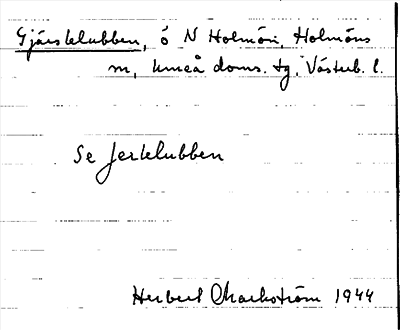 Gjärsklubben, ö N Holmön, Holmöns
sn, Umeå doms. tg. Västerb. l.
Se Jerklubben
Herbert Markström 1944